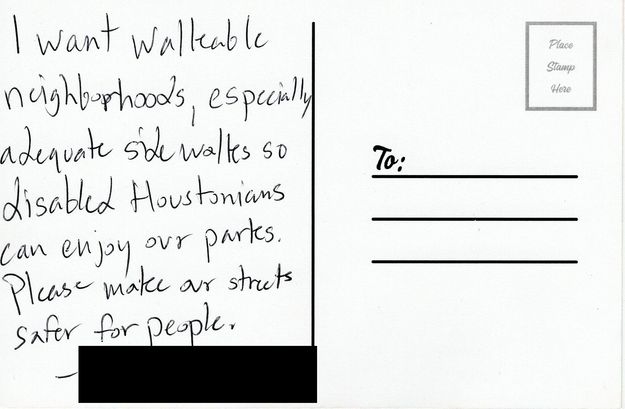 I want walkable
neighborhoods, especially
adequate sidewalks so
disabled Houstonians
can enjoy our parks.
Please make our streets
safer for people.
–
Place
Stamp
Here
To: